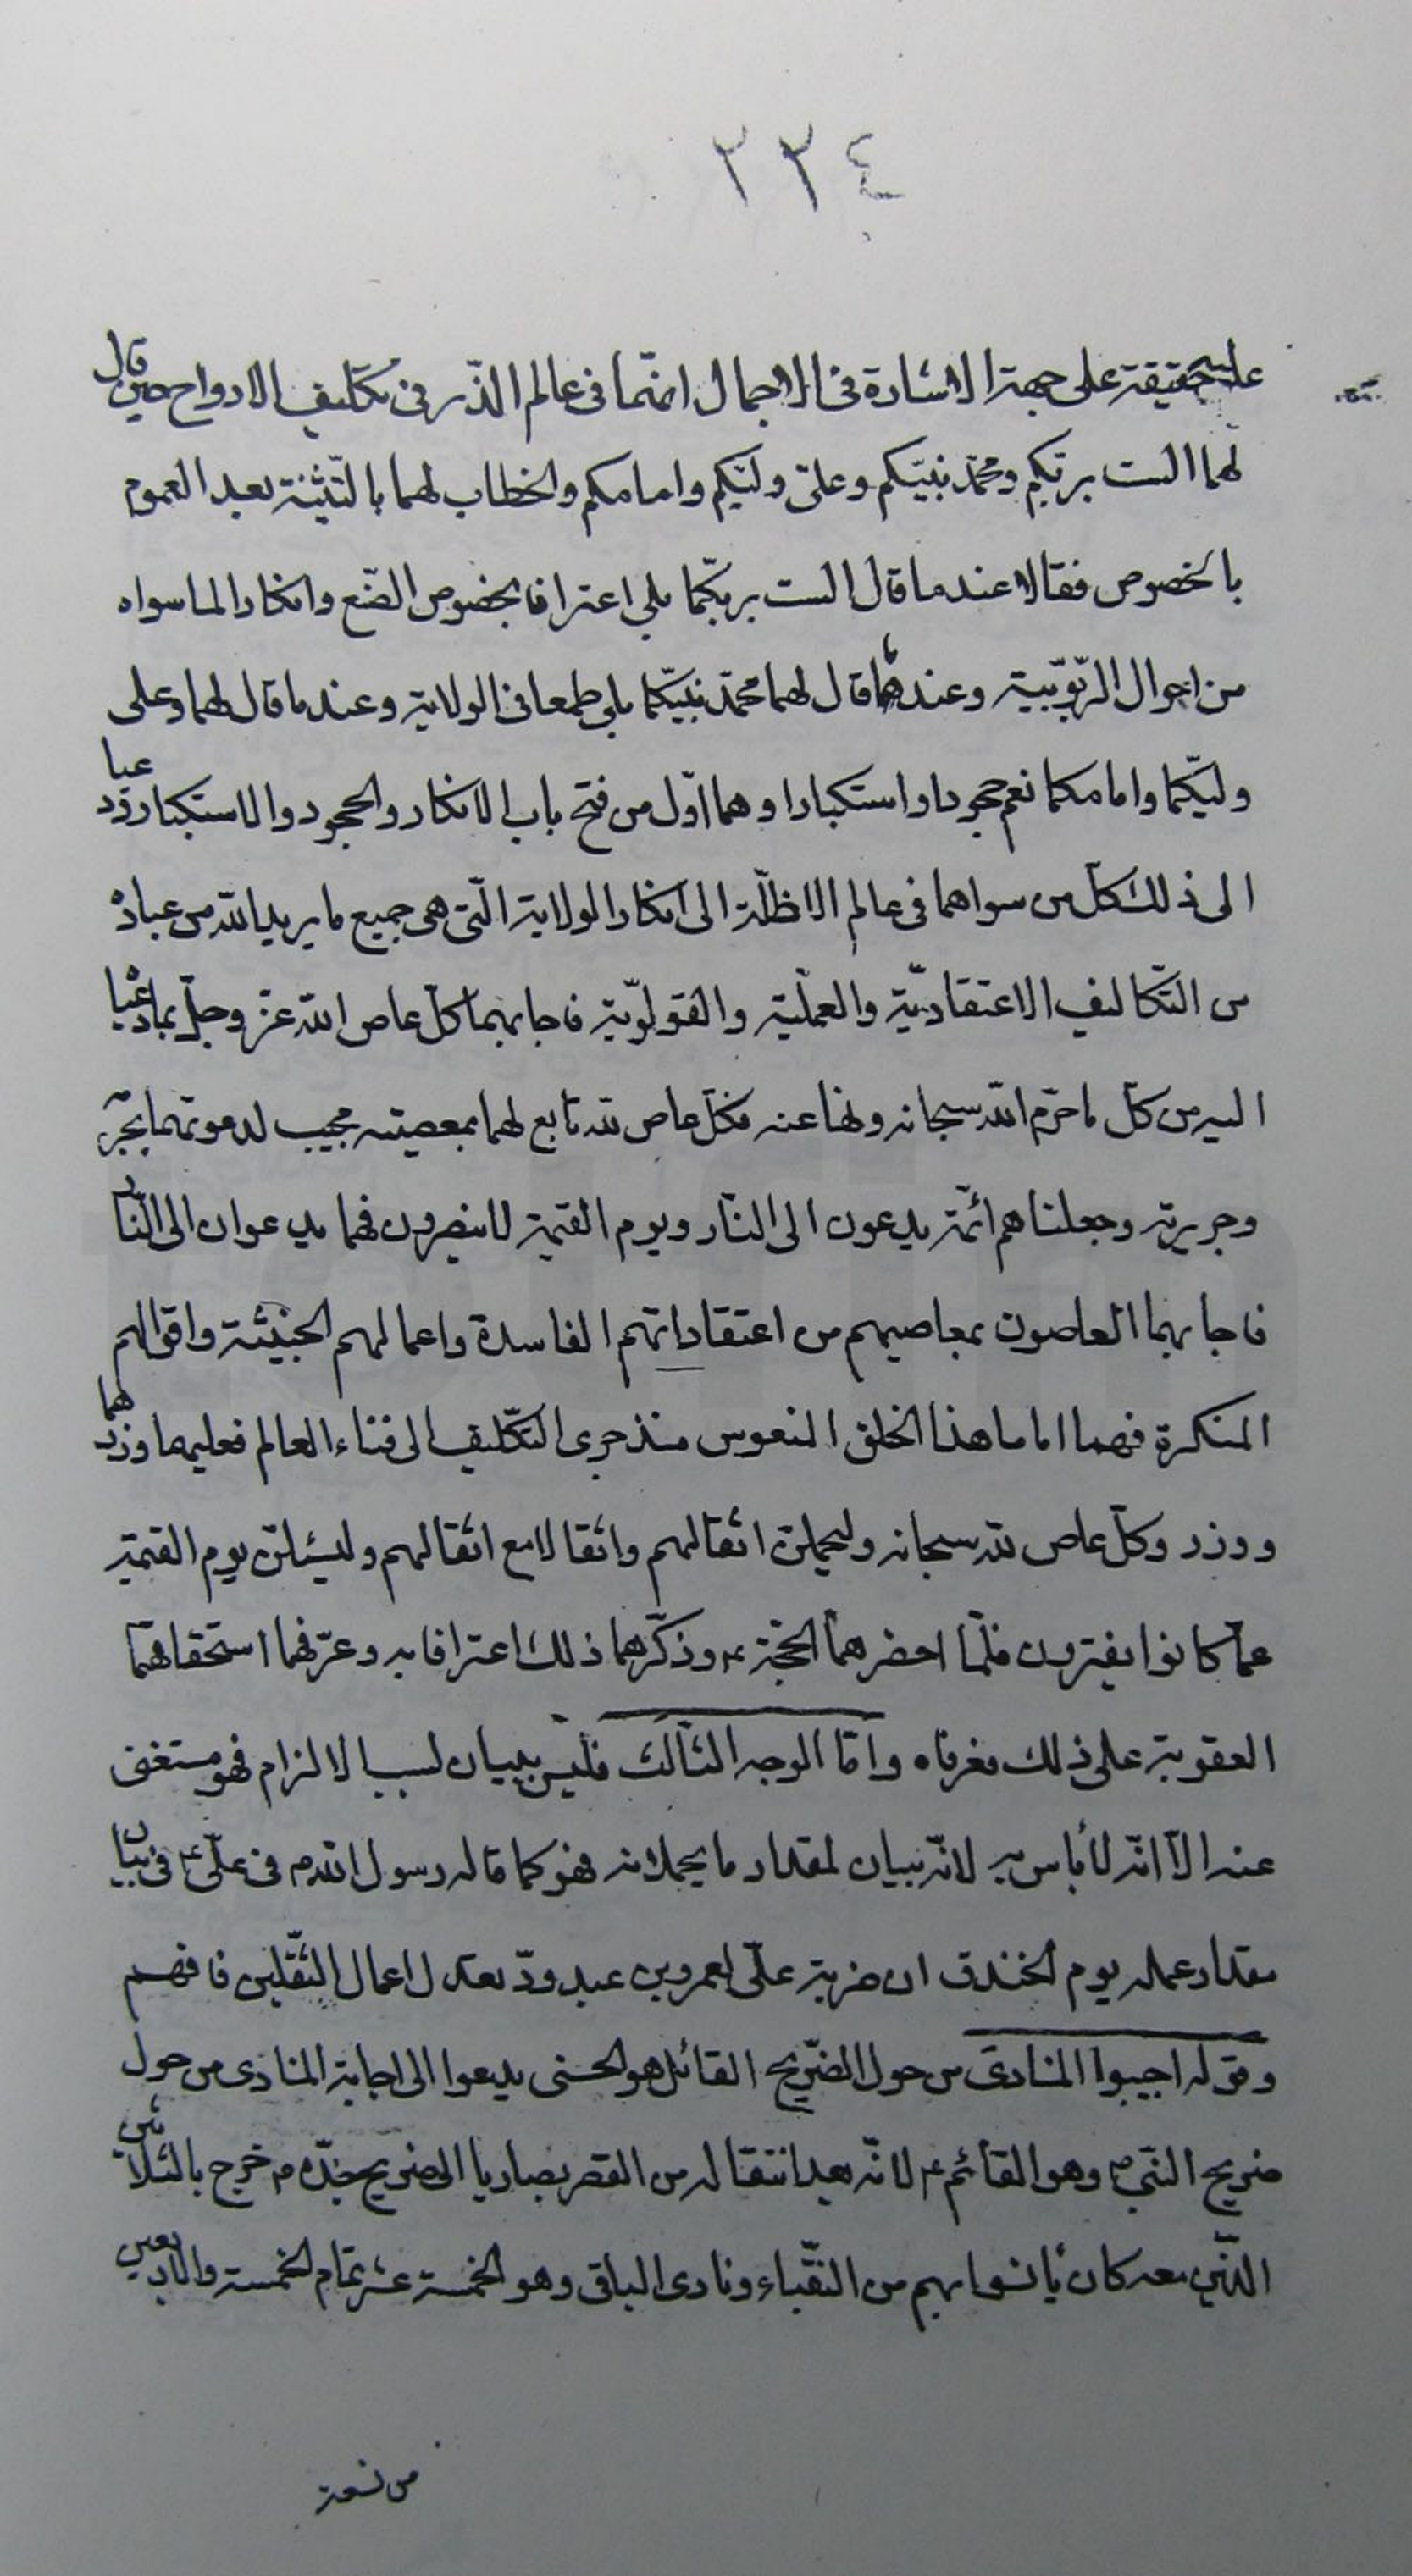 ٢٢٤
على حقيقة على جهة الاشارة فى الاجمال انهما فى عالم الذّر فى تكليف الارواح حين قال
لهما الست بربّكم ومحمّد نبيّكم وعلىّ وليّكم وامامكم والخطاب لهما بالتّثنية بعد العموم
بالخصوص فقالا عند ما قال الست بربّكما بلى اعترافا بخصوص الصّنع وانكارا لما سواه
من احوال الرّبوبيّة وعندما قال لهما محمّد نبيّكما بلى طمعا فى الولاية وعند ما قال لهما وعلى
وليّكما وامامكما نعم جحودا واستكبارا وهما اوّل من فتح باب الانكار والجحود والاستكبار ودعيا
الى ذلك كلّ من سواهما فى عالم الاظلّة الى انكار الولاية الّتى هى جميع ما يريد الله من عباده
من التّكاليف الاعتقاديّة والعمليّة والقوليّة فاجابهما كلّ عاص الله عزّ وجلّ بما دعيا
اليه من كلّ ما حرّم الله سبحانه ونها عنه فكلّ عاص لله تابع لهما بمعصيته مجيب لدعوتهما بجرّ
وجريرته وجعلناهم ائمّة يدعون الى النّار ويوم القيمة لا ينصرون فهما يدعوان الى النّار
فاجابهما العاصون بمعاصيهم من اعتقاداتهم الفاسدة واعمالهم الخبيثة واقوالهم
المنكرة فهما اماما هذا الخلق المنعوس منذ جرى التّكليف الى فناء العالم فعليهما وزرهما
ووزر وكلّ عاص لله سبحانه وليحملنّ اثقالهم واثقالا مع اثقالهم وليسئلنّ يوم القيمة
عمّا كانوا يفترون فلمّا احضرهما الحجّة ع وذكّرهما ذلك اعترافا به وعرّفهما استحقاقهما
العقوبة على ذلك فعرفاه وامّا الوجه الثّالث فليس ببيان لسبب الالزام فهو مستغنى
عنه الّا انّه لا بأس به لانّه بيان لمقدار ما يحملانه فهو كما قاله رسول الله ص فى علىّ ع فى بيان
مقدار عمله يوم الخندق ان ضربة علىّ لعمرو بن عبد ودّ تعدل اعمال الثّقلين فافهم
وقوله اجيبوا المنادى من حول الضّريح القائل هو الحسنى يدعوا الى اجابة المنادى من حول
ضريح النّبى ص وهو القائم ع لانّه بعد انتقاله من القصر بصاريا الى ضريح جدّه ص خرج بالثّلاثين
الذّين معه كان يأنسوا بهم من النّقباء ونادى الباقى وهو الخمسة عشر تمام الخمسة والاربعين
من نسعة